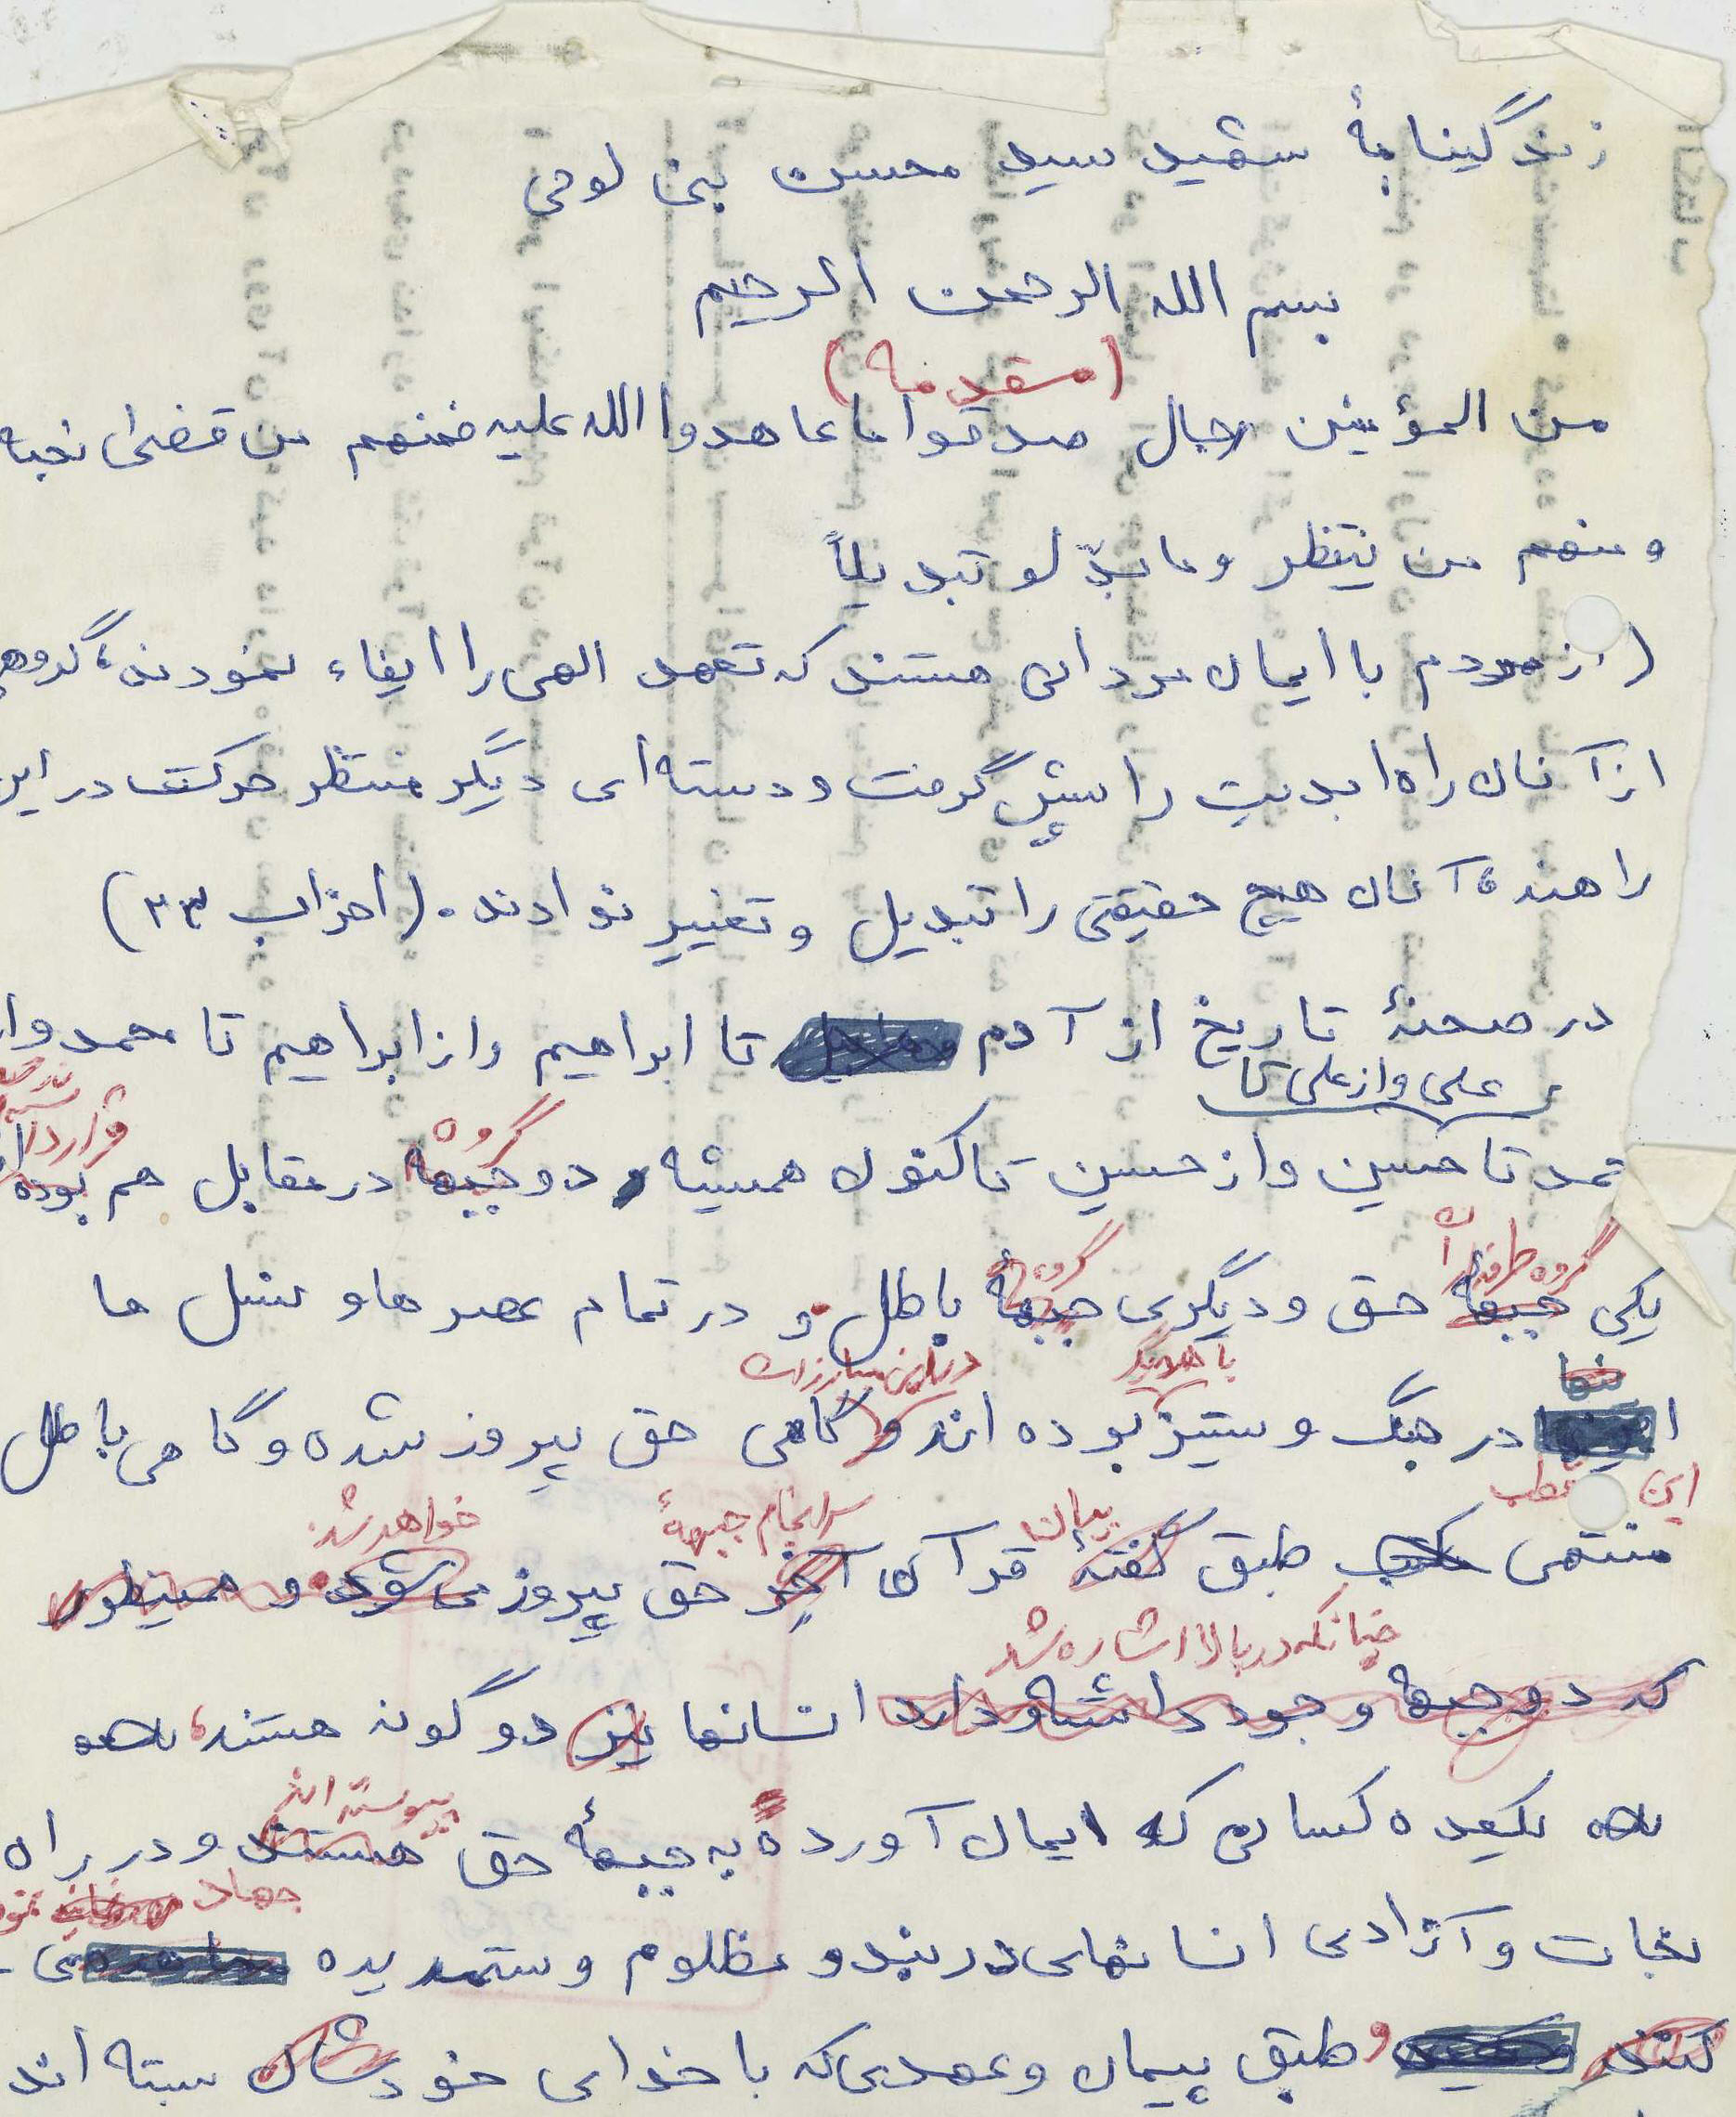 زندگینامهٔ شهید سید محسن بنی لوحی
بسم الله الرحمن الرحیم
(مقدمه)
من المؤمنین رجال صدقوا ما عاهدوا الله علیه فمنهم من قضی نحبه
و منهم من ینتظر و ما بدّلو تبدیلاً
(از مردم با ایمان مردانی هستند که تعهد الهی را ایفاء نمودند، گروهی
از آنان راه ابدیت را پیش گرفت و دسته ای دیگر منتظر حرکت در این
راهند، آنان هیچ حقیقتی را تبدیل و تغییر ندادند. (احزاب ۲۳)
در صحنهٔ تاریخ از آدم تا ابراهیم و از ابراهیم تا محمد و از
علی و از علی تا
محمد تا حسین و از حسین تاکنون همیشه دو جبهه در مقابل هم بوده
گروه
قرار داشته
گروه طرفدار
گروه
یکی جبههٔ حق و دیگری جبههٔ باطل و در تمام عصرها و نسل ها
تنها
با همدیگر
در این مبارزات
در جنگ و ستیز بوده اند و گاهی حق پیروز شده و گاهی باطل
این
قطب
بیان
سرانجام جبههٔ
خواهد شد.
منتهی طبق گفتهٔ قرآن آخر حق پیروز می شود و همینطور
چنانکه در بالا اشاره شد
که دو جبهه وجود داشته و دارد انسانها نیز دو گونه هستند،
پیوسته اند
یکعده کسانی که ایمان آورده به جبههٔ حق هستند و در راه
جهاد
نجات و آزادی انسانهای دربند و مظلوم و ستمدیده می-
کنند و طبق پیمان و عهدی که با خدای خودشان بسته اند